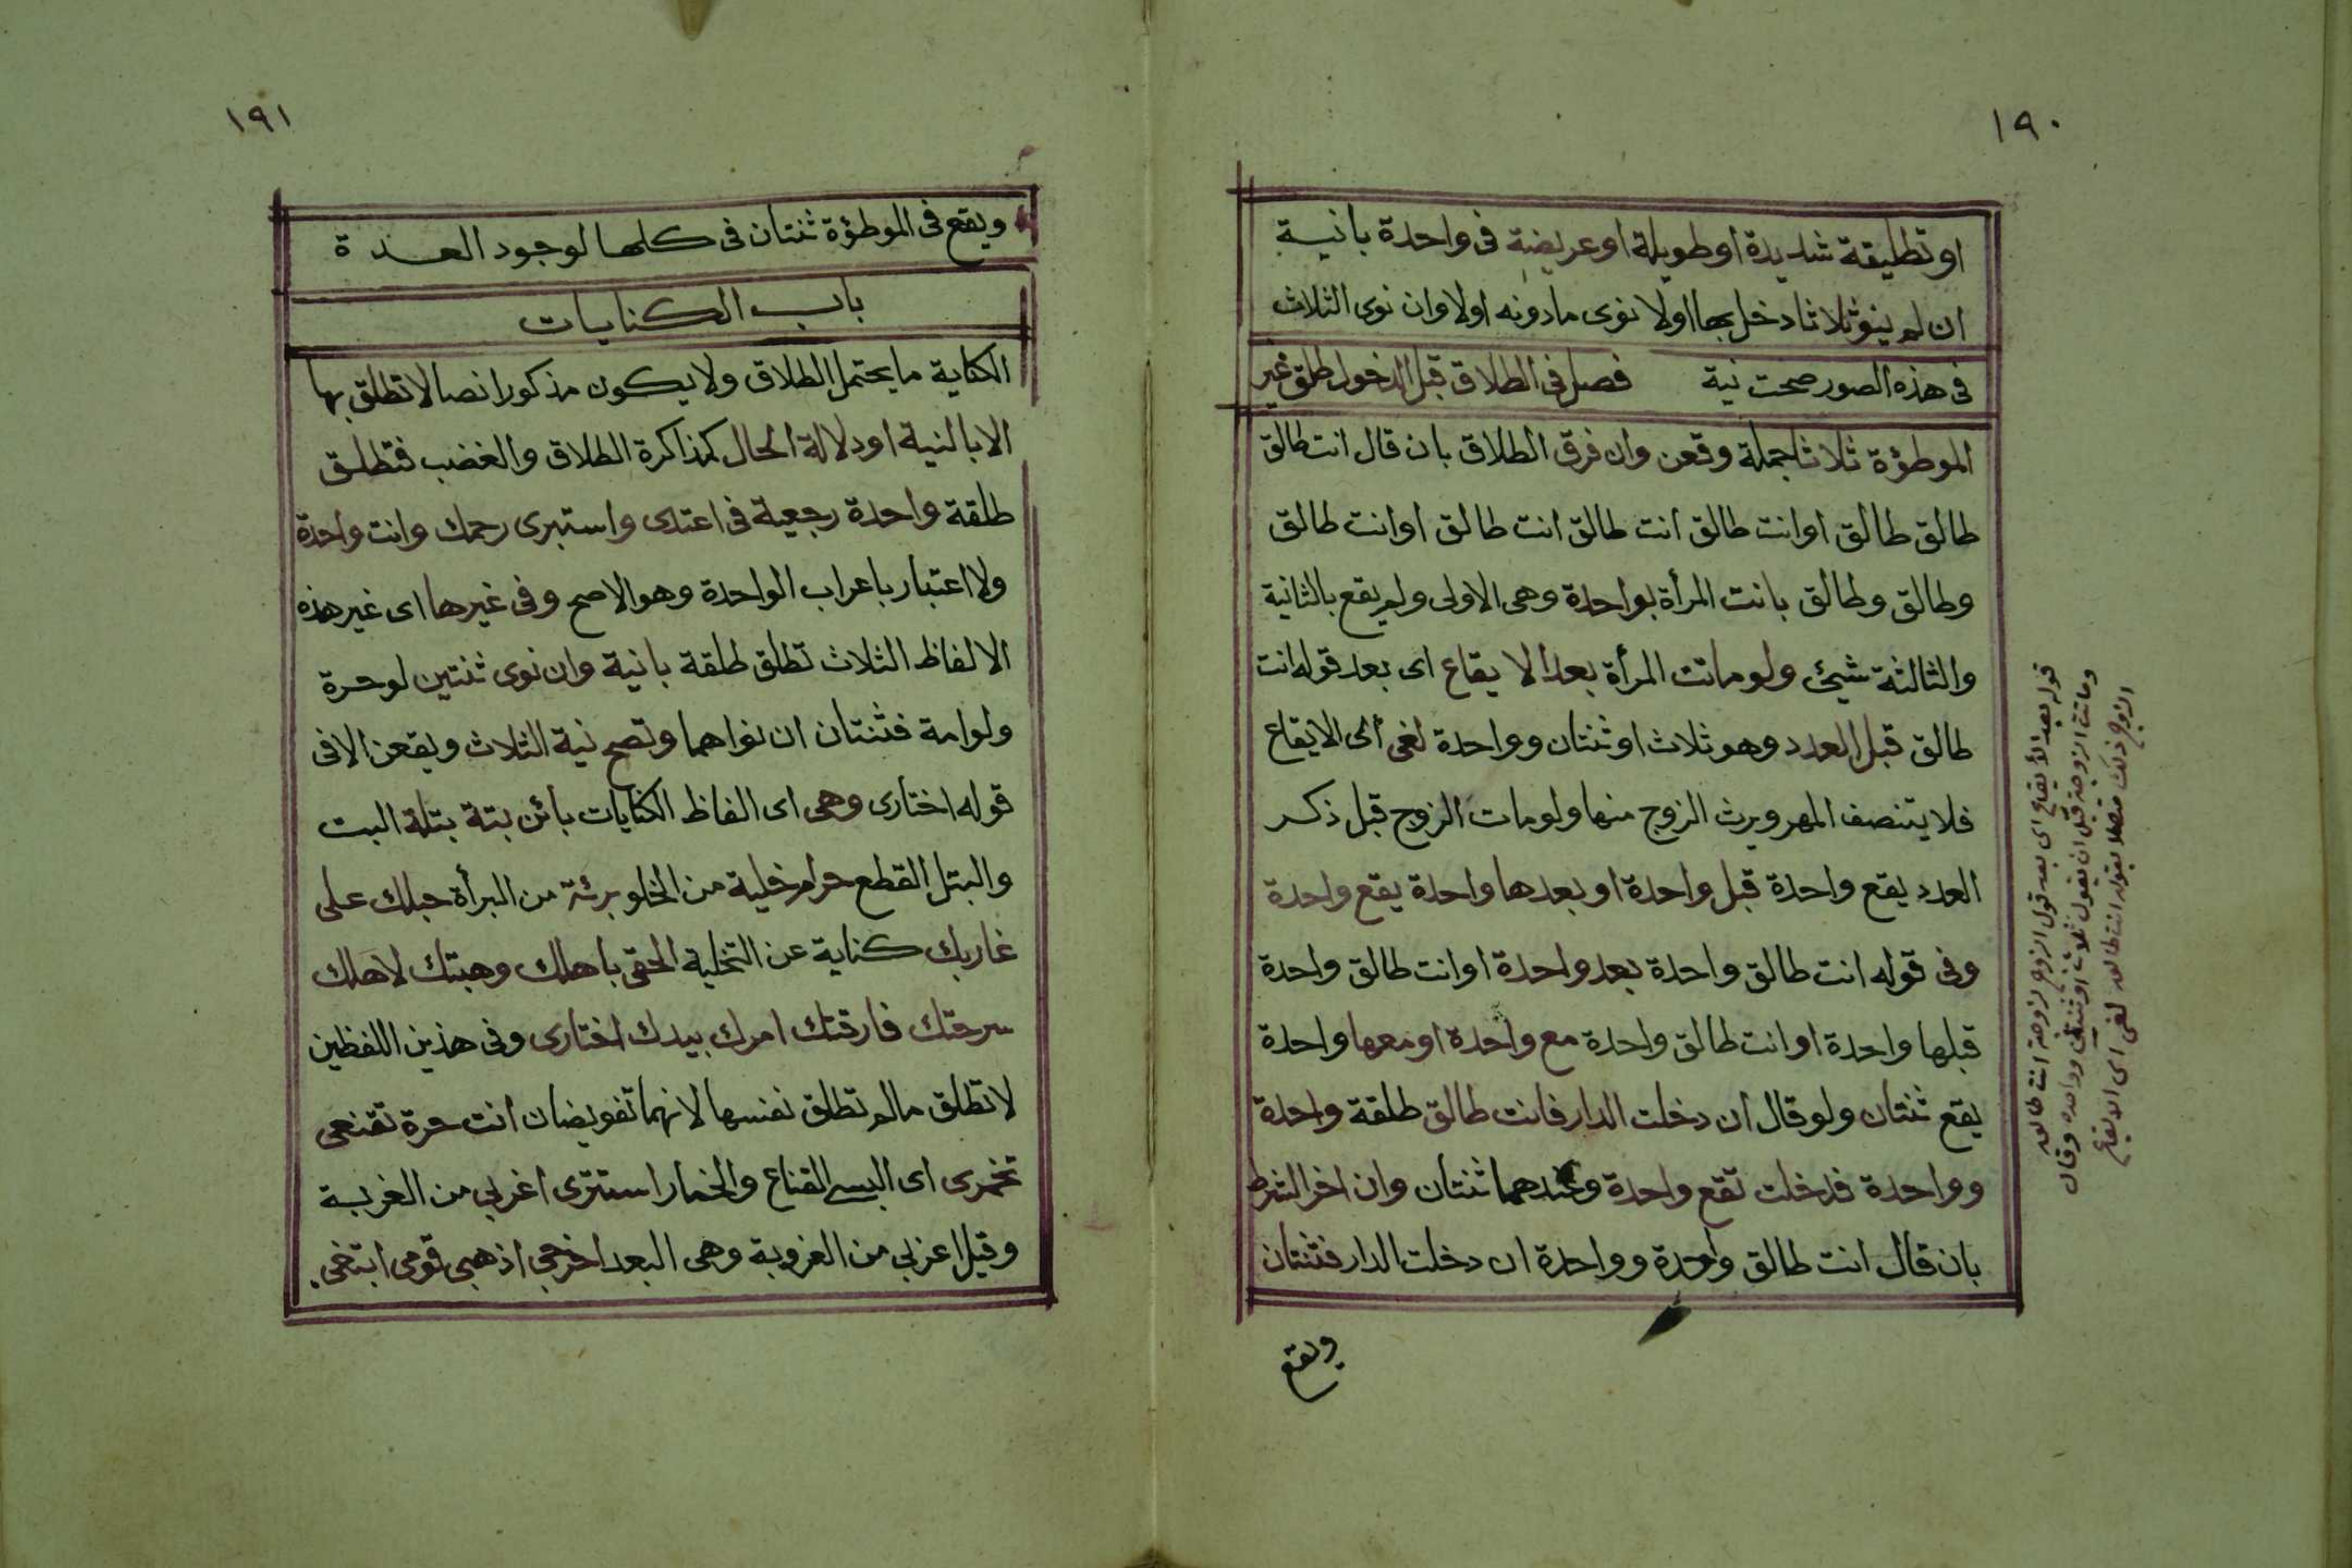 ١٩٠
او تطليقة شديدة او طويلة او عريضة فى واحدة بانية
ان لم ينو ثلاثا دخل بها اولا نوى مادونه اولا وان نوى الثلاث
فى هذه الصور صحت نية فصل فى الطلاق قبل الدخول طلق غير
الموطؤة ثلاثا جملة وقعن وان فرق الطلاق بان قال انت طالق
طالق طالق او انت طالق انت طالق انت طالق او انت طالق
وطالق وطالق بانت المرأة بواحدة وهى الاولى ولم يقع بالثانية
والثالثة شيئ ولو ماتت المرأة بعد الايقاع اى بعد قوله انت
طالق قبل العدد وهو ثلاث او ثنتان وواحدة لغى اى الايقاع
فلا يتنصف المهر ويرث الزوج منها ولو مات الزوج قبل ذكر
العدد يقع واحدة قبل واحدة او بعدها واحدة يقع واحدة
وفى قوله انت طالق واحدة بعد واحدة او انت طالق واحدة
قبلها واحدة او انت طالق واحدة مع واحدة او معها واحدة
يقع ثنتان ولو قال ان دخلت الدار فانت طالق طلقة واحدة
وواحدة فدخلت تقع واحدة وعندهما ثنتان وان اخر الشرط
بان قال انت طالق واحدة وواحدة ان دخلت الدار فثنتان
ويقع
قوله بعد الايقاع اى بعد قول الزوج لزوجة انت طالق
وماتت الزوجة قبل ان يقول ثلاث او ثنتين وواحدة وقال
الزوج ذلك متصلا بقوله انت طالق لغى اى الايقاع
١٩١
ويقع فى الموطؤة ثنتان فى كلها لوجود العدة
باب الكنايات
الكناية ما يحتمل الطلاق ولا يكون مذكورا نصا لا تطلق بها
الا بالنية او دلالة الحال كمذاكرة الطلاق والغضب فتطلق
طلقة واحدة رجعية فى اعتدى واستبرى رحمك وانت واحدة
ولا اعتبار باعراب الواحدة وهو الاصح وفى غيرها اى غير هذه
الالفاظ الثلاث تطلق طلقة بانية وان نوى ثنتين لو حرة
ولو امة فثنتان ان نواهما وتصح نية الثلاث ويقعن الا فى
قوله اختارى وهى اى الفاظ الكنايات بائن بتة بتلة البت
والبتل القطع حرام خلية من الخلو برئة من البرأة حبلك على
غاربك كناية عن التخلية الحقى باهلك وهبتك لاهلك
سرحتك فارقتك امرك بيدك اختارى وفى هذين اللفظين
لا تطلق مالم تطلق نفسها لانهما تفويضان انت حرة تقنعى
تخمرى اى البسى القناع والخمار استترى اغربى من الغربة
وقيل اعزبى من العزوبة وهى البعد اخرجى اذهبى قومى ابتغى